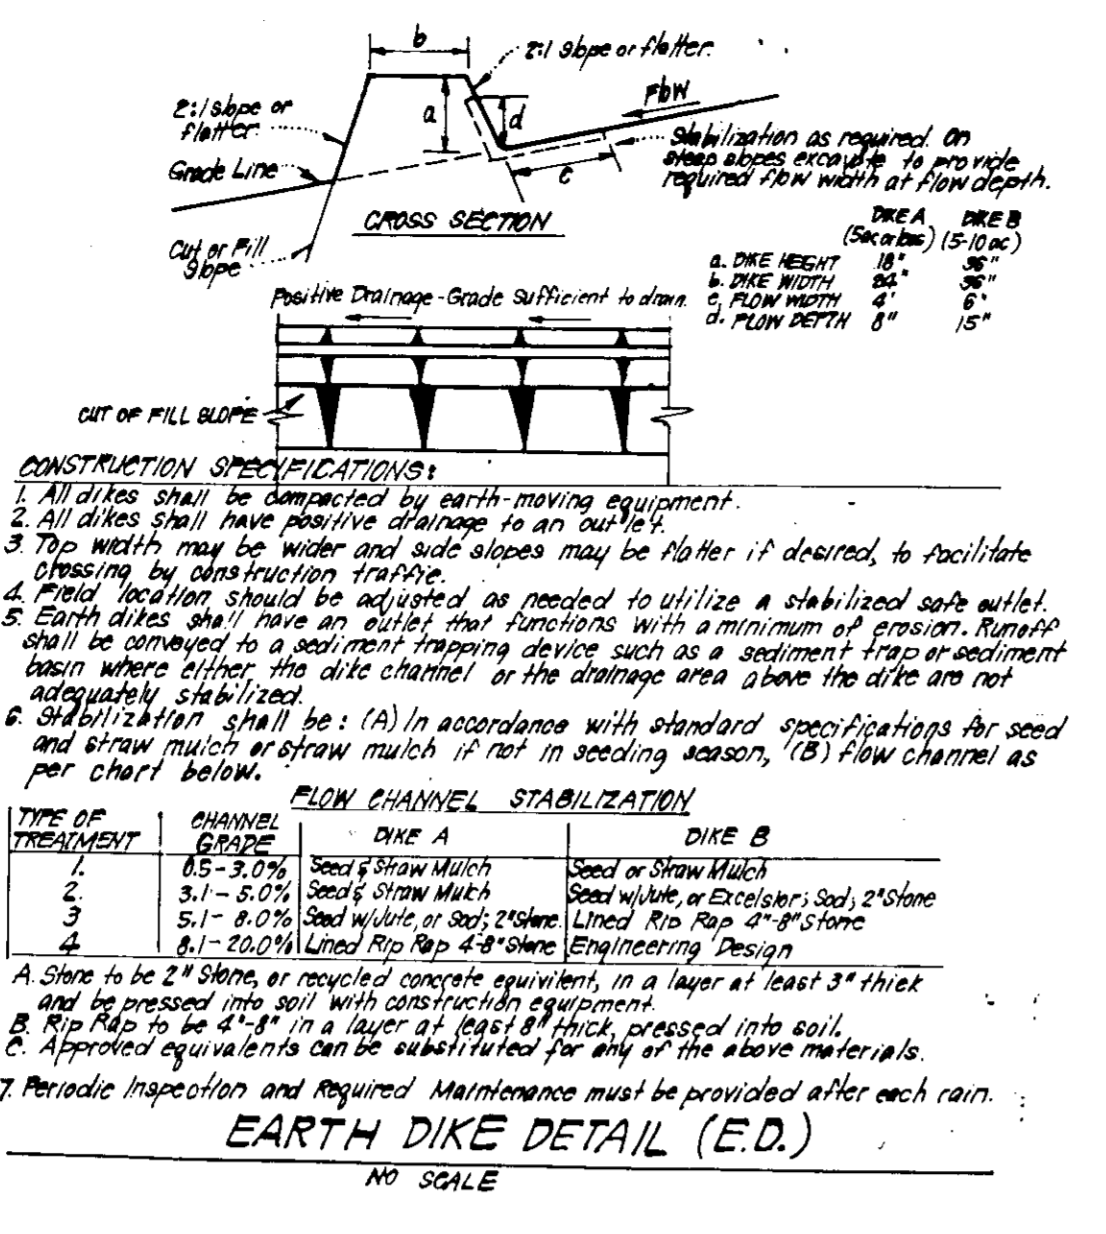 b
2:1 slope or flatter.
2:1 slope or
flatter
a
d
Flow
Grade Line
Stabilization as required. On
steep slopes excavate to provide
required flow width at flow depth.
c
CROSS SECTION
Cut or Fill
Slope
DIKE A DIKE B
(5ac or less) (5-10 ac)
a. DIKE HEIGHT 18" 36"
b. DIKE WIDTH 24" 36"
c. FLOW WIDTH 4' 6'
d. FLOW DEPTH 8" 15"
Positive Drainage-Grade Sufficient to drain.
CUT OF FILL SLOPE
CONSTRUCTION SPECIFICATIONS:
1. All dikes shall be compacted by earth-moving equipment.
2. All dikes shall have positive drainage to an outlet.
3. Top width may be wider and side slopes may be flatter if desired, to facilitate
crossing by construction traffic.
4. Field location should be adjusted as needed to utilize a stabilized safe outlet.
5. Earth dikes shall have an outlet that functions with a minimum of erosion. Runoff
shall be conveyed to a sediment trapping device such as a sediment trap or sediment
basin where either the dike channel or the drainage area above the dike are not
adequately stabilized.
6. Stabilization shall be: (A) In accordance with standard specifications for seed
and straw mulch or straw mulch if not in seeding season, (B) flow channel as
per chart below.
FLOW CHANNEL STABILIZATION
TYPE OF
TREATMENT CHANNEL
GRADE DIKE A DIKE B
1. 0.5-3.0% Seed & Straw Mulch Seed or Straw Mulch
2. 3.1-5.0% Seed & Straw Mulch Seed w/Jute, or Excelsior; Sod; 2" Stone
3 5.1-8.0% Seed w/Jute, or Sod; 2" Stone. Lined Rip Rap 4"-8" Stone
4 8.1-20.0% Lined Rip Rap 4-8" Stone Engineering Design
A. Stone to be 2" Stone, or recycled concrete equivilent, in a layer at least 3" thick
and be pressed into soil with construction equipment.
B. Rip Rap to be 4"-8" in a layer at least 8" thick, pressed into soil.
C. Approved equivalents can be substituted for any of the above materials.
7. Periodic Inspection and Required Maintenance must be provided after each rain.
EARTH DIKE DETAIL (E.D.)
NO SCALE